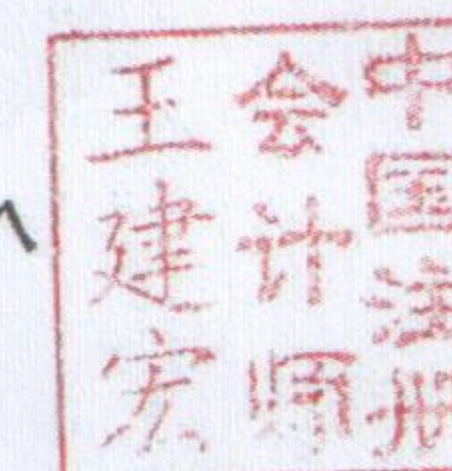 中国注册
会计师
王建宏